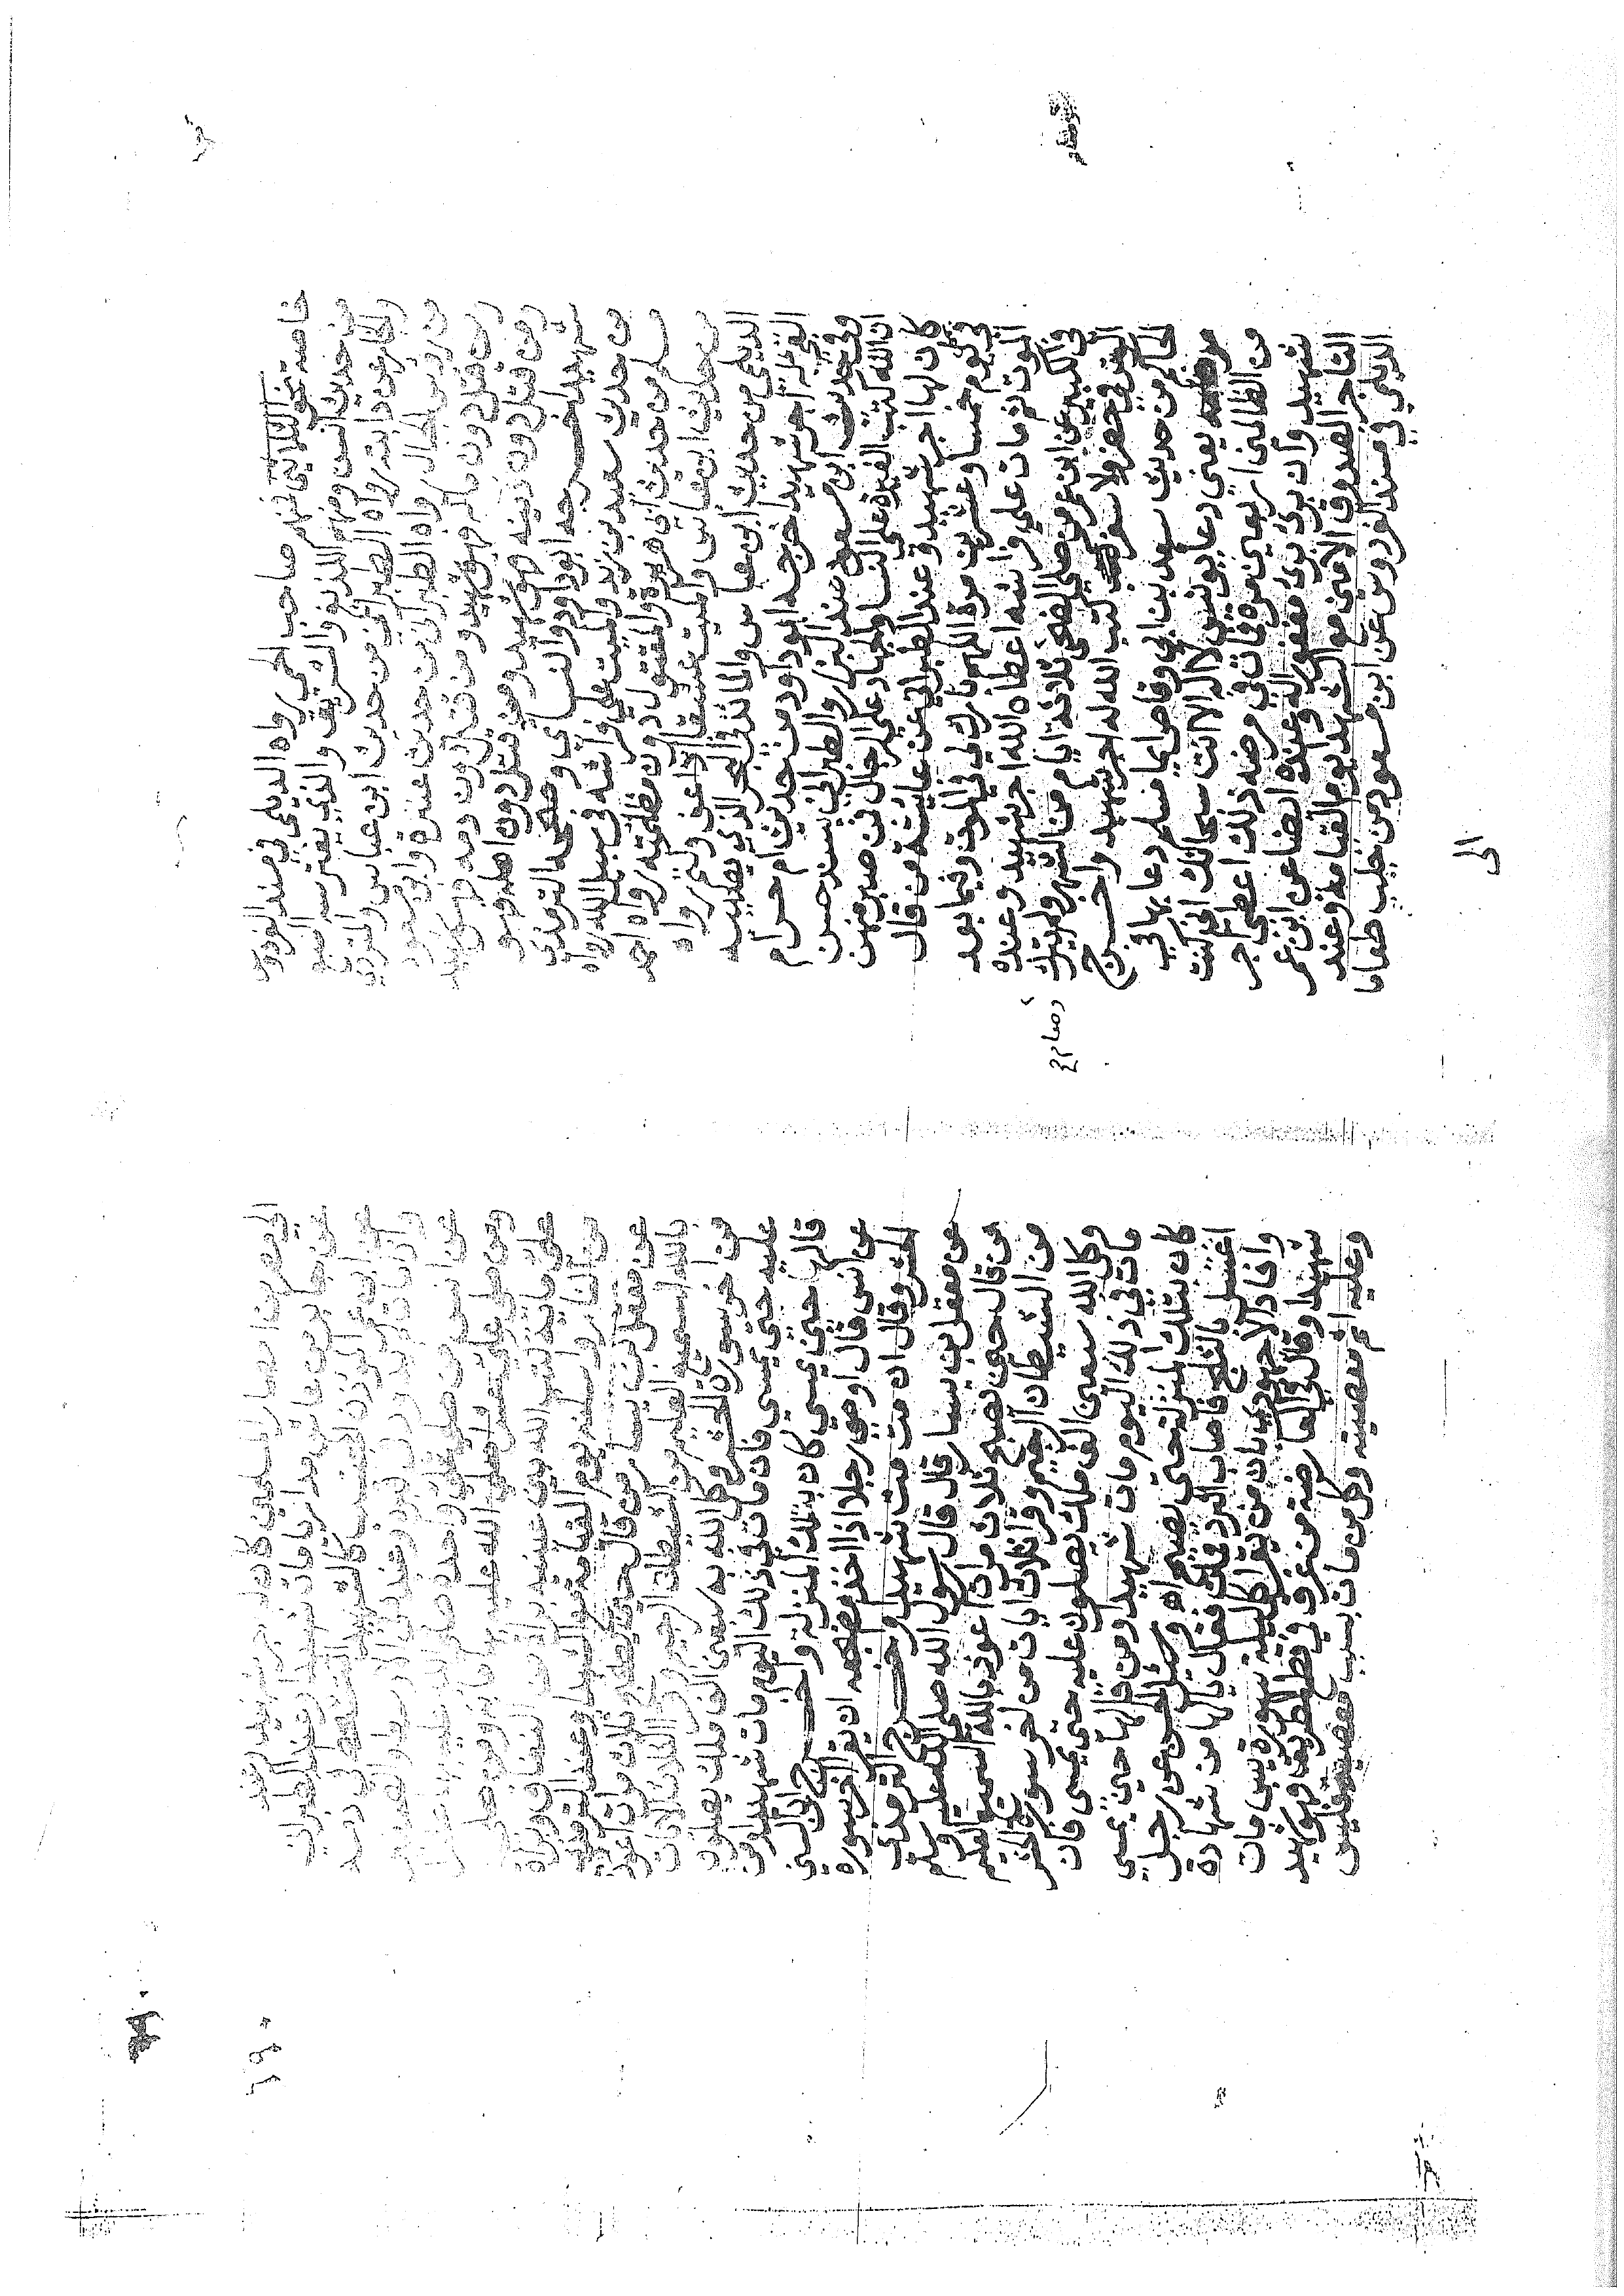 خاصة تتمة الثلاثين منهم صاحب الحمى رواه الديلمي في مسند الفردوس
من حديث انس ومنهم اللديغ والشريق والذي يفترسه السبع
والخار عن دابته رواه الطبراني من حديث ابن عباس والمتردي
من رؤس الجبال رواه الطبراني من حديث
ومن قتل دون ماله فهو شهيد ومن قتل دون دمه فهو شهيد
ومن قتل دون دينه فهو شهيد ومن قتل دون اهله فهو
شهيد اخرجه ابو داود والنساي وصححه الترمذي
من حديث سعيد بن زيد والميت على فراشه في سبيل الله رواه
مسلم من حديث ابي هريرة والمقتول دون مظلمته رواه احمد
من حديث ابن عباس والميت عشقا اذا عف وكتم رواه
الديلمي من حديث ابن عباس والمائد في البحر الذي يصيبه
القي له اجر شهيد اخرجه ابو داود من حديث ام حرام
وفي حديث ابن مسعود عند البزار والطبراني بسند حسن
ان الله كتب الغيرة على النسا والجهاد على الرجال فمن صبر منهن
كان لها اجر شهيد وعند الطبراني عن عايشة من قال
في كل يوم خمسا وعشرين مرة اللهم بارك لي في الموت وفيما بعد
الموت ثم مات على فراشه اعطاه الله اجر شهيد وعنده
في الكبير عن ابن عمر من صلى الضحى ثلاثة ايام من الشهر ولم يترك
وصام صح
الوتر في حضر ولا سفر كتب الله له اجر شهيد واخرج
الحاكم من حديث سعد بن ابي وقاص ايما مسلم دعا بها في
مرضه يعني دعا يونس لا اله الا انت سبحانك اني كنت
من الظالمين اربعين مرة فمات في مرضه ذلك اعطي اجر
شهيد وان برئ برئ مغفورا له وعنده ايضا عن ابن عمر
التاجر الصدوق الامين مع الشهدا يوم القيامة وعند
الديلمي في مسند الفردوس عن ابن مسعود من جلب طعاما
الى
الى مصر من امصار المسلمين كان له اجر شهيد وعند
عن جابر من عاش مداريا مات شهيدا وعند الطبراني
عن ابن عمر المؤذن المحتسب كالشهيد المتشحط في دمه
عن انس من صلى علي واحدة صلى الله عليه
ومن صلى علي عشرا صلى الله عليه مائة ومن صلى
علي مائة كتب الله بين عينيه براة من النفاق وبراة
من النار واسكنه يوم القيامة مع الشهدا وعند الترمذي
عن معقل بن يسار من قال حين يصبح ثلاث مرات اعوذ
بالله السميع العليم من الشيطان الرجيم وقرا الثلاث الايات
من اخر سورة الحشر وكل الله به سبعين الف ملك يصلون
عليه حتى يمسي فان مات في ذلك اليوم مات شهيدا ومن
قالها حين يمسي كان بتلك المنزلة واخرج ابن السني
عن انس قال اوصى رجلا اذا اخذ مضجعه ان يقرا اخر سورة
الحشر وقال ان مت مت شهيدا واخرج الترمذي
عن معقل بن يسار قال قال رسول الله صلى الله عليه وسلم
من قال حين يصبح ثلاث مرات اعوذ بالله السميع العليم
من الشيطان الرجيم وقرا ثلاث ايات من اخر سورة الحشر
وكل الله سبعين الف ملك يصلون عليه حتى يمسي فان
مات في ذلك اليوم مات شهيدا ومن قالها حين يمسي
كان بتلك المنزلة حتى يصبح اه وسئل الحسن عن رجل
اغتسل بالثلج فاصابه البرد فمات فقال يا لها من شهادة
وافاد الاجهوري بان من يقرا كل ليلة سورة يس مات
شهيدا وقال في العارضة من غرق في قطع الطريق فهو شهيد
وعليه اثم معصيته وكل من مات بسبب معصية فليس